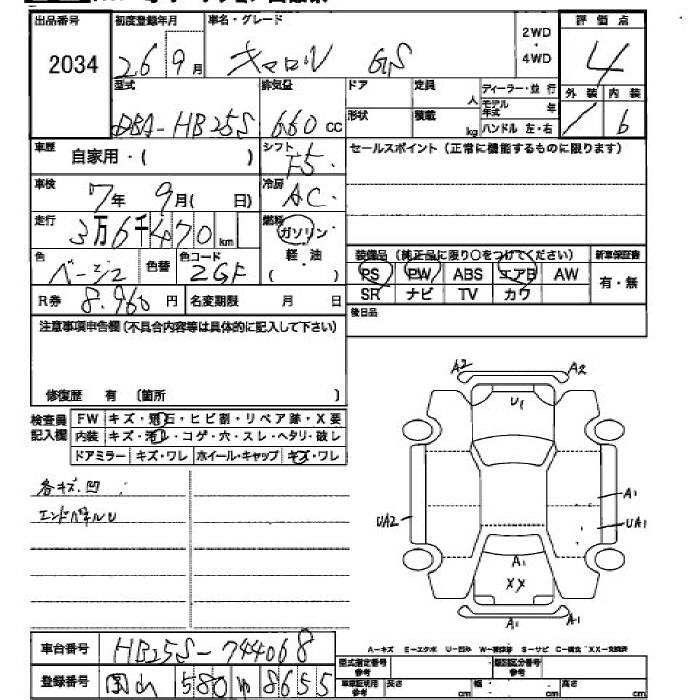 出品番号 初度登録年月 車名・グレード 2WD ・ 4WD 評価点
2034 26 9月 キャロル GS 4
型式 排気量 ドア 定員 人 ディーラー・並行 外装 内装
DBA-HB25S 660cc 形状 積載 kg モデル年式 年 ハンドル 左・右 b
車歴 自家用・( ) シフト F5 セールスポイント(正常に機能するものに限ります)
車検 7年 9月( 日) 冷房 AC
走行 3万6千470km 燃料 ガソリン
軽・油
色 ベージュ 色替 色コード ZGF 装備品(純正品に限り○をつけてください) 新車保証書
PS PW ABS エアB AW 有・無
R券 8.960円 名変期限 月 日 SR ナビ TV カワ
注意事項申告欄(不具合内容等は具体的に記入して下さい) 後日品
修復歴 有 (箇所 )
検査員記入欄 FW キズ・飛石・ヒビ割・リペア跡・X要
内装 キズ・汚レ・コゲ・穴・スレ・ヘタリ・破レ
ドアミラー キズ・ワレ ホイール・キャップ キズ・ワレ
A2 A2
U1
各キズ.凹
エンドパネルU
A1
UA2 UA1
A1
XX
A1 A1
車台番号 HB25S-744068
A-キズ E-エクボ U-凹み W-補修跡 S-サビ C-腐食 XX-交換済
登録番号 岡山 580 8655
型式指定番号 参考 類別区分番号 参考
車庫証明用 参考 長さ cm 幅 cm 高さ cm